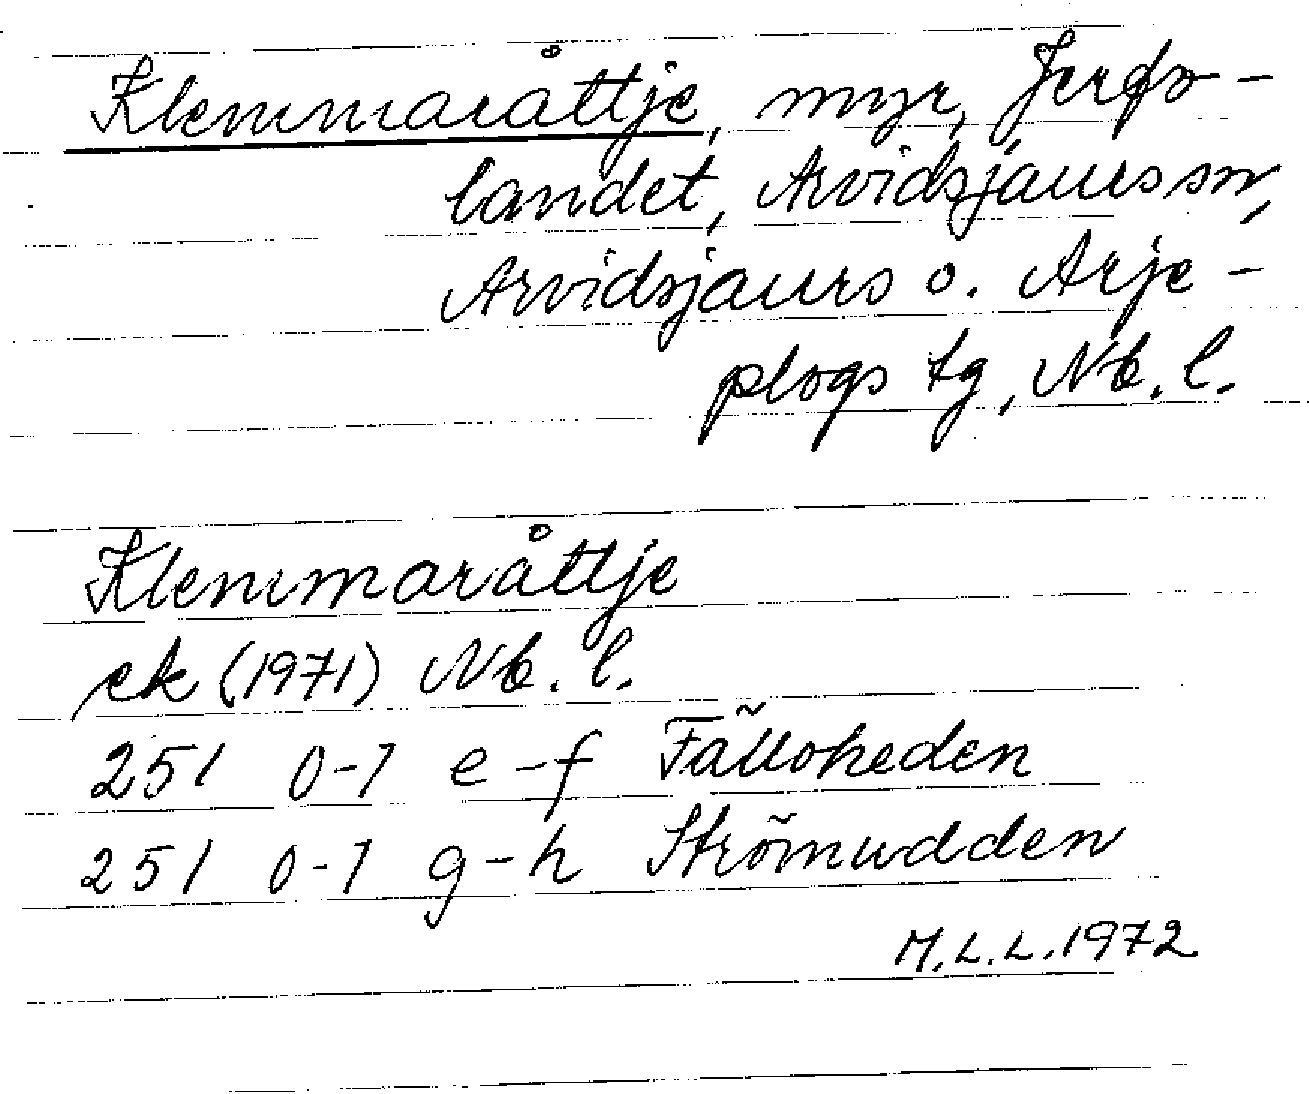 Klemmaråttje, myr, Jerfo-
landet, Arvidsjaurs sn,
Arvidsjaurs o. Arje-
plogs tg, Nb. l.
Klemmaråttje
ek (1971) Nb. l.
251 0-1 e-f Fälloheden
251 0-1 g-h Strömudden
M.L.L. 1972